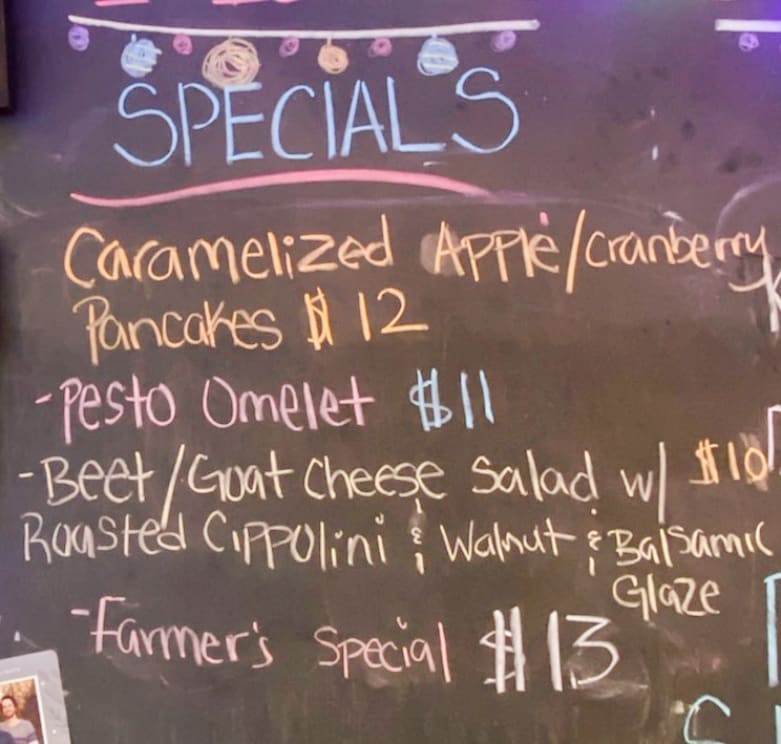 SPECIALS
Caramelized Apple/Cranberry
Pancakes $12
-Pesto Omelet $11
-Beet/Goat Cheese Salad w/ $10
Roasted Cippolini & Walnut & Balsamic
Glaze
-Farmer's Special $13